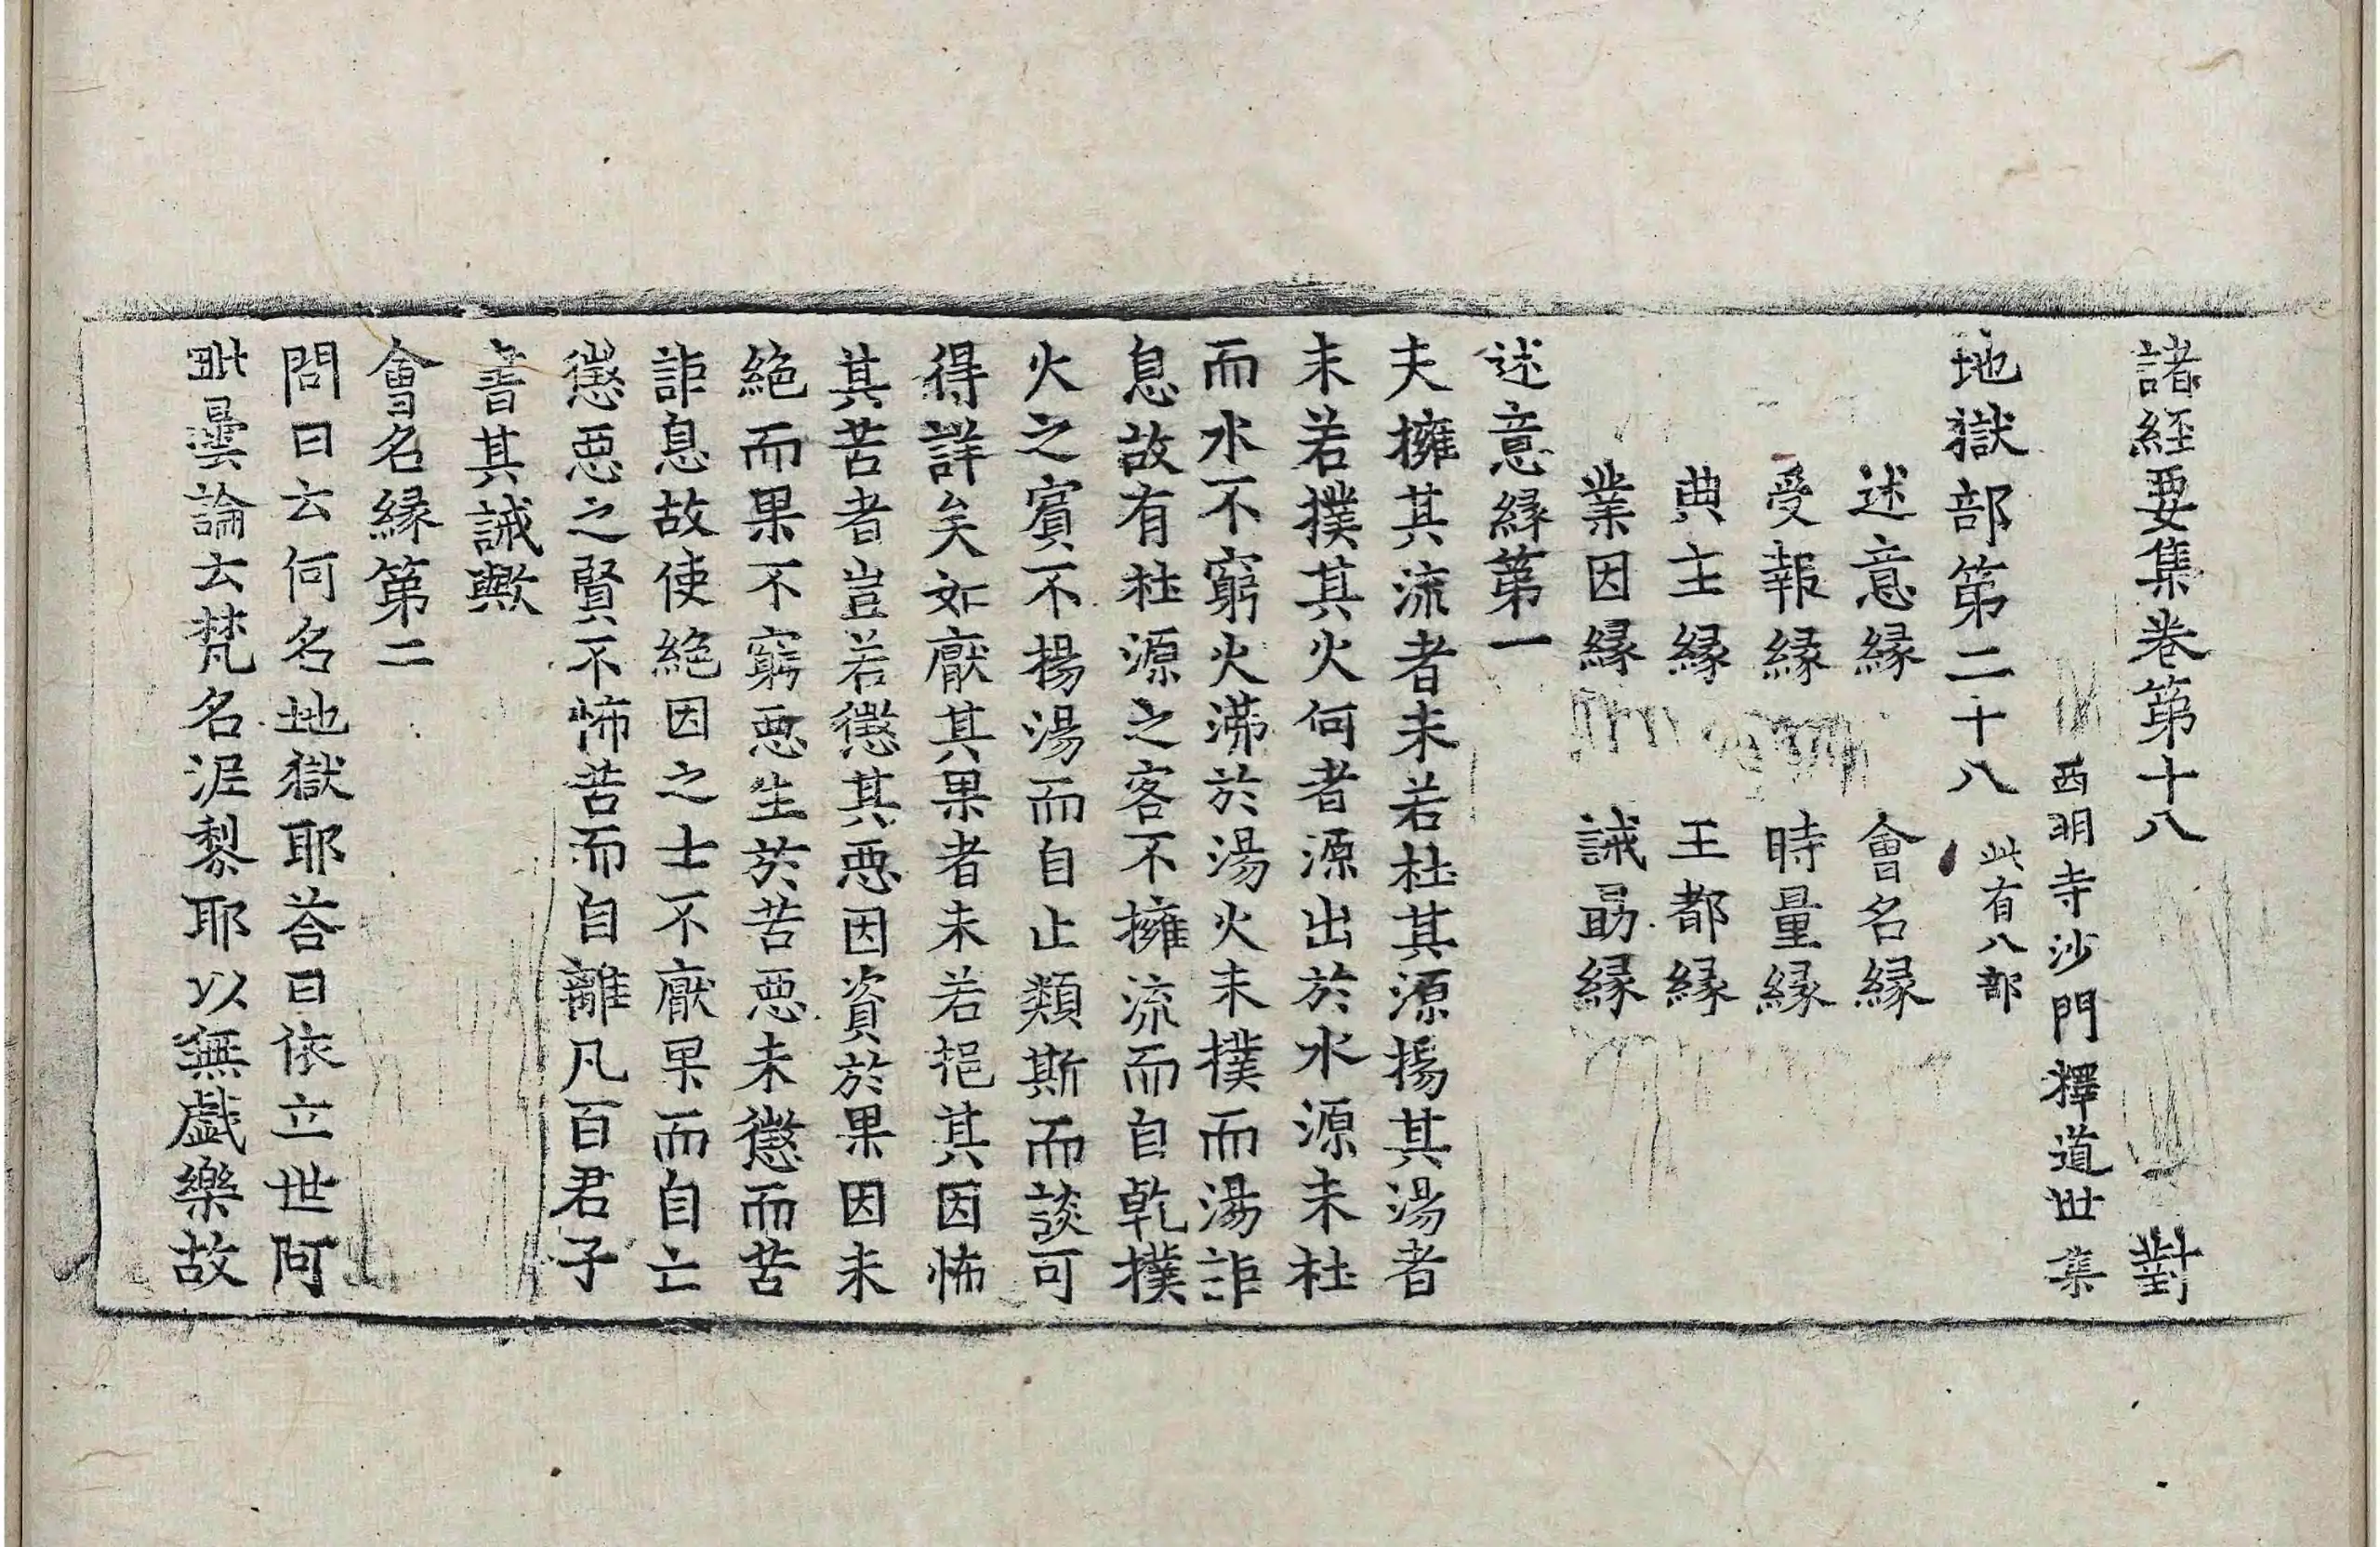 諸經要集卷第十八 對
西明寺沙門釋道世集
地獄部第二十八 此有八部
述意緣 會名緣
受報緣 時量緣
典主緣 王都緣
業因緣 誡勗緣
述意緣第一
夫擁其流者未若杜其源揚其湯者
未若撲其火何者源出於水源未杜
而水不窮火沸於湯火未撲而湯詎
息故有杜源之客不擁流而自乾撲
火之賓不揚湯而自止類斯而談可
得詳矣如厭其果者未若挹其因怖
其苦者豈若懲其惡因資於果因未
絕而果不窮惡生於苦惡未懲而苦
詎息故使絕因之士不厭果而自亡
懲惡之賢不怖苦而自離凡百君子
書其誡歟
會名緣第二
問曰云何名地獄耶荅曰依立世阿
毗曇論云梵名泥黎耶以無戲樂故